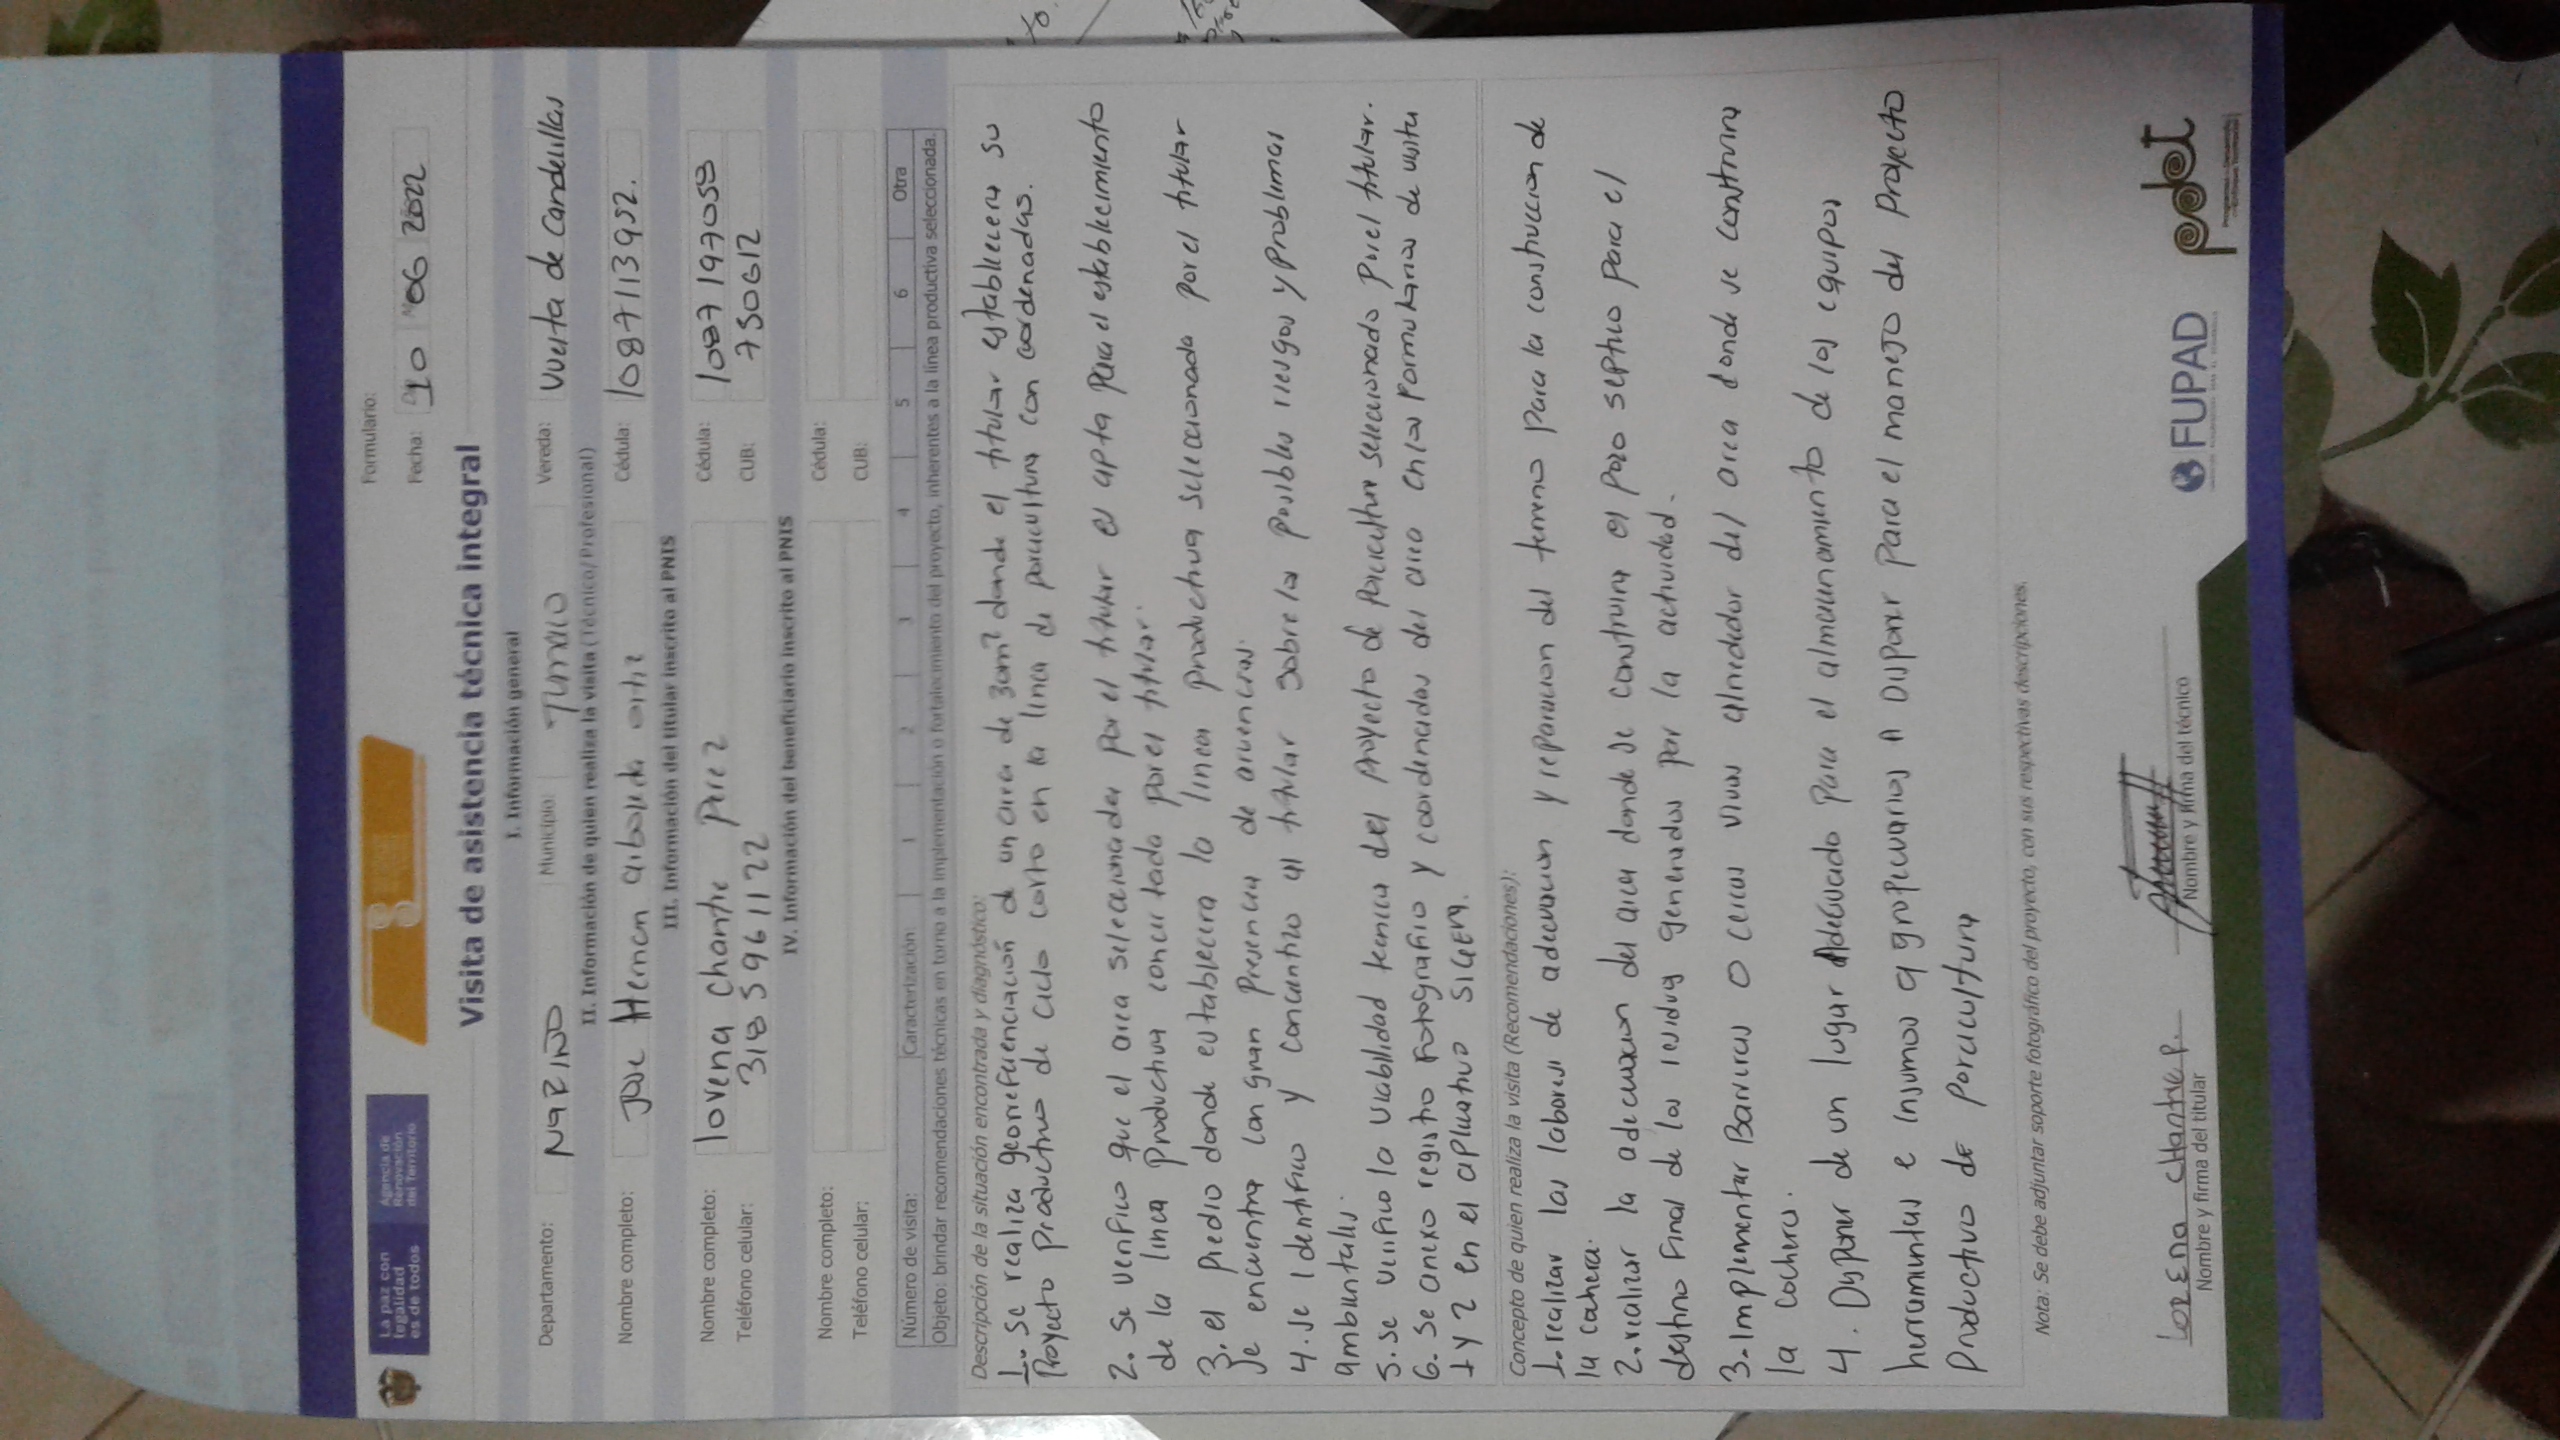 La paz con
legalidad
es de todos
Agencia de
Renovación
del Territorio
Formulario:
Fecha: 10 06 2022
Visita de asistencia técnica integral
I. Información general
Departamento: NARIÑO Municipio: TUMACO Vereda: Vuelta de Candelillas
II. Información de quien realiza la visita (Técnico/Profesional)
Nombre completo: Jose Hernan arboleda ortiz Cédula: 1087113952.
III. Información del titular inscrito al PNIS
Nombre completo: lorena chantre Perez Cédula: 1087197059
Teléfono celular: 3185961122 CUB: 750612
IV. Información del beneficiario inscrito al PNIS
Nombre completo: Cédula:
Teléfono celular: CUB:
Número de visita: Caracterización: 1 2 3 4 5 6 Otra
Objeto: brindar recomendaciones técnicas en torno a la implementación o fortalecimiento del proyecto, inherentes a la línea productiva seleccionada.
Descripción de la situación encontrada y diagnóstico:
1. Se realiza georrefuenciación de un area de 30m² donde el titular establecera su
Proyecto Productivo de ciclo corto en la linea de porcicultura con coordenadas.
2. Se verifico que el area seleccionada por el titular es apta para el establecimiento
de la linea Productiva concertada por el titular.
3. el Predio donde establecera la linea productiva seleccionada por el titular
se encuentra con gran Presencia de arvenses.
4. se Identifico y concientizo al titular sobre los posibles riesgos y Problemas
ambientales.
5. se verifico la viabilidad tecnica del Proyecto de Porcicultura seleccionado por el titular.
6. se anexo registro Fotografico y coordenadas del area en los Formularios de visita
1 y 2 en el aplicativo SIGEPI.
Concepto de quien realiza la visita (Recomendaciones):
1. realizar las labores de adecuacion y reparacion del terreno para la construccion de
la cochera.
2. realizar la adecuacion del area donde se construira el pozo septico para el
destino Final de los residuos generados por la actividad.
3. Implementar Barreras o cercas vivas alrededor del area donde se construira
la cochera.
4. Disponer de un lugar Adecuado Para el almacenamiento de los equipos
herramientas e insumos agropecuarios A Disponer para el manejo del Proyecto
Productivo de Porcicultura
Nota: Se debe adjuntar soporte fotográfico del proyecto, con sus respectivas descripciones.
LORENA CHantre P.
Nombre y firma del titular
Nombre y firma del técnico
FUPAD
pdet